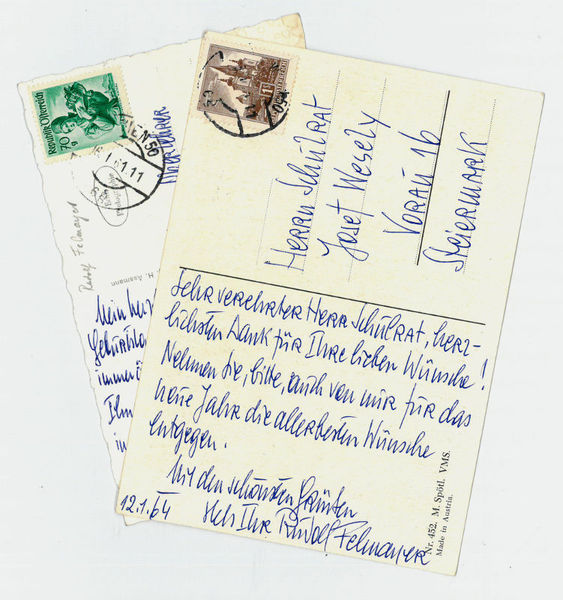 Herrn Schulrat
Josef Wesely
Vorau 16
Steiermark
Sehr verehrter Herr Schulrat, herz-
lichsten Dank für Ihre lieben Wünsche!
Nehmen Sie, bitte, auch von mir für das
neue Jahr die allerbesten Wünsche
entgegen.
Mit den schönsten Grüßen
stets Ihr Rudolf Felmayer
12.1.64
Nr. 452. M. Spötl. VMS.
Made in Austria.
REPUBLIK ÖSTERREICH
70 g
WIEN 50
61.11
Rudolf Felmayer
H. Assmann
Mein
immer
Ihn
in